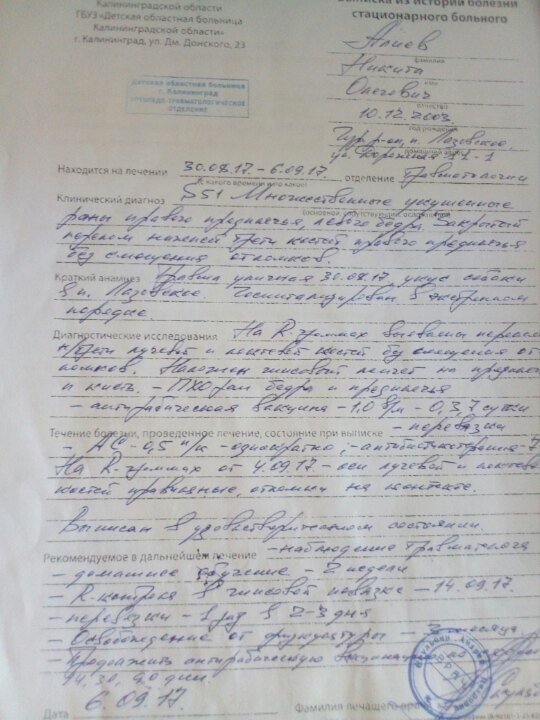 Калининградской области
ГБУЗ «Детская областная больница
Калининградской области»
г. Калининград, ул. Дм. Донского, 23
Выписка из истории болезни
стационарного больного
Детская областная больница
г. Калининград
отделение
Алиев
фамилия
Никита
имя
Олегович
отчество
10.12.2003
год рождения
Гур. р-он, п. Лазовское,
домашний адрес
ул. Дорожная 11-1
Находится на лечении 30.08.17 - 6.09.17, отделение травматологии
(с какого времени и по какое)
Клинический диагноз S51 Множественные укушенные
(основное, сопутствующее, осложнения)
раны правого предплечья, левого бедра. Закрытый
перелом нижней трети костей правого предплечья
без смещения отломков.
Краткий анамнез Травма уличная 30.08.17 укус собаки
в п. Лазовское. Госпитализирован в экстренном
порядке.
Диагностические исследования На R-граммах выявлен перелом
н/трети лучевой и локтевой костей без смещения от-
ломков. Наложен гипсовый лонгет на предплечье
и кисть. - ПХО ран бедра и предплечья
- антирабическая вакцина - 1,0 в/м - 0, 3, 7 сутки
- перевязки
Течение болезни, проведенное лечение, состояние при выписке
- АС - 0,5 п/к - однократно, - антибиотикотерапия - 7
На R-граммах от 4.09.17 - оси лучевой и локтевой
костей правильные, отломки на контакте.
Выписан в удовлетворительном состоянии.
Рекомендуемое в дальнейшем лечение - наблюдение травматолога
- домашнее обучение - 2 недели
- R-контроль в гипсовой повязке - 14.09.17.
- перевязки - 1 раз в 2-3 дня
- Освобождение от физкультуры - месяца
- Продолжить антирабическую вакцинацию
14, 30, 90 дни.
Дата 6.09.17
Фамилия лечащего врача